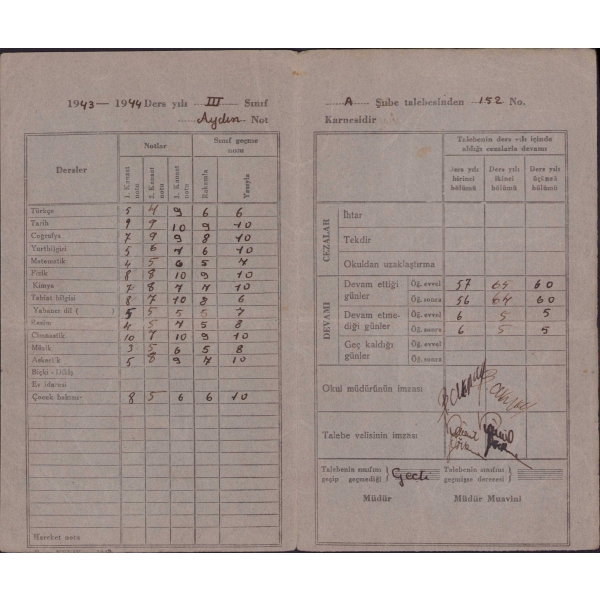 1943 — 1944 Ders yılı III Sınıf
Aydın Not
Dersler
Notlar
Sınıf geçme notu
1. Kanaat notu
2. Kanaat notu
3. Kanaat notu
Rakamla
Yazıyla
Türkçe 5 4 9 6 6
Tarih 9 9 10 9 10
Coğrafya 7 9 9 8 10
Yurtbilgisi 5 6 7 6 10
Matematik 4 5 6 5 7
Fizik 8 8 10 9 10
Kimya 7 8 7 7 10
Tabiat bilgisi 8 7 10 8 6
Yabancı dil ( ) 5 5 5 5 7
Resim 4 5 7 5 8
Cimnastik 10 7 10 9 10
Müzik 3 5 6 5 8
Askerlik 5 8 9 7 10
Biçki - Dikiş
Ev idaresi
Çocuk bakımı 8 5 6 6 10
Hareket notu
A Şube talebesinden 152 No.
Karnesidir
Talebenin ders yılı içinde aldığı cezalarla devamı
Ders yılı birinci bölümü
Ders yılı ikinci bölümü
Ders yılı üçüncü bölümü
CEZALAR
İhtar
Tekdir
Okuldan uzaklaştırma
DEVAMI
Devam ettiği günler
Öğ. evvel 57 65 60
Öğ. sonra 56 64 60
Devam etmediği günler
Öğ. evvel 6 5 5
Öğ. sonra 6 5 5
Geç kaldığı günler
Öğ. evvel
Öğ. sonra
Okul müdürünün imzası
Talebe velisinin imzası
Talebenin sınıfını geçip geçmediği } Geçti
Talebenin sınıfını geçmişse derecesi }
Müdür
Müdür Muavini